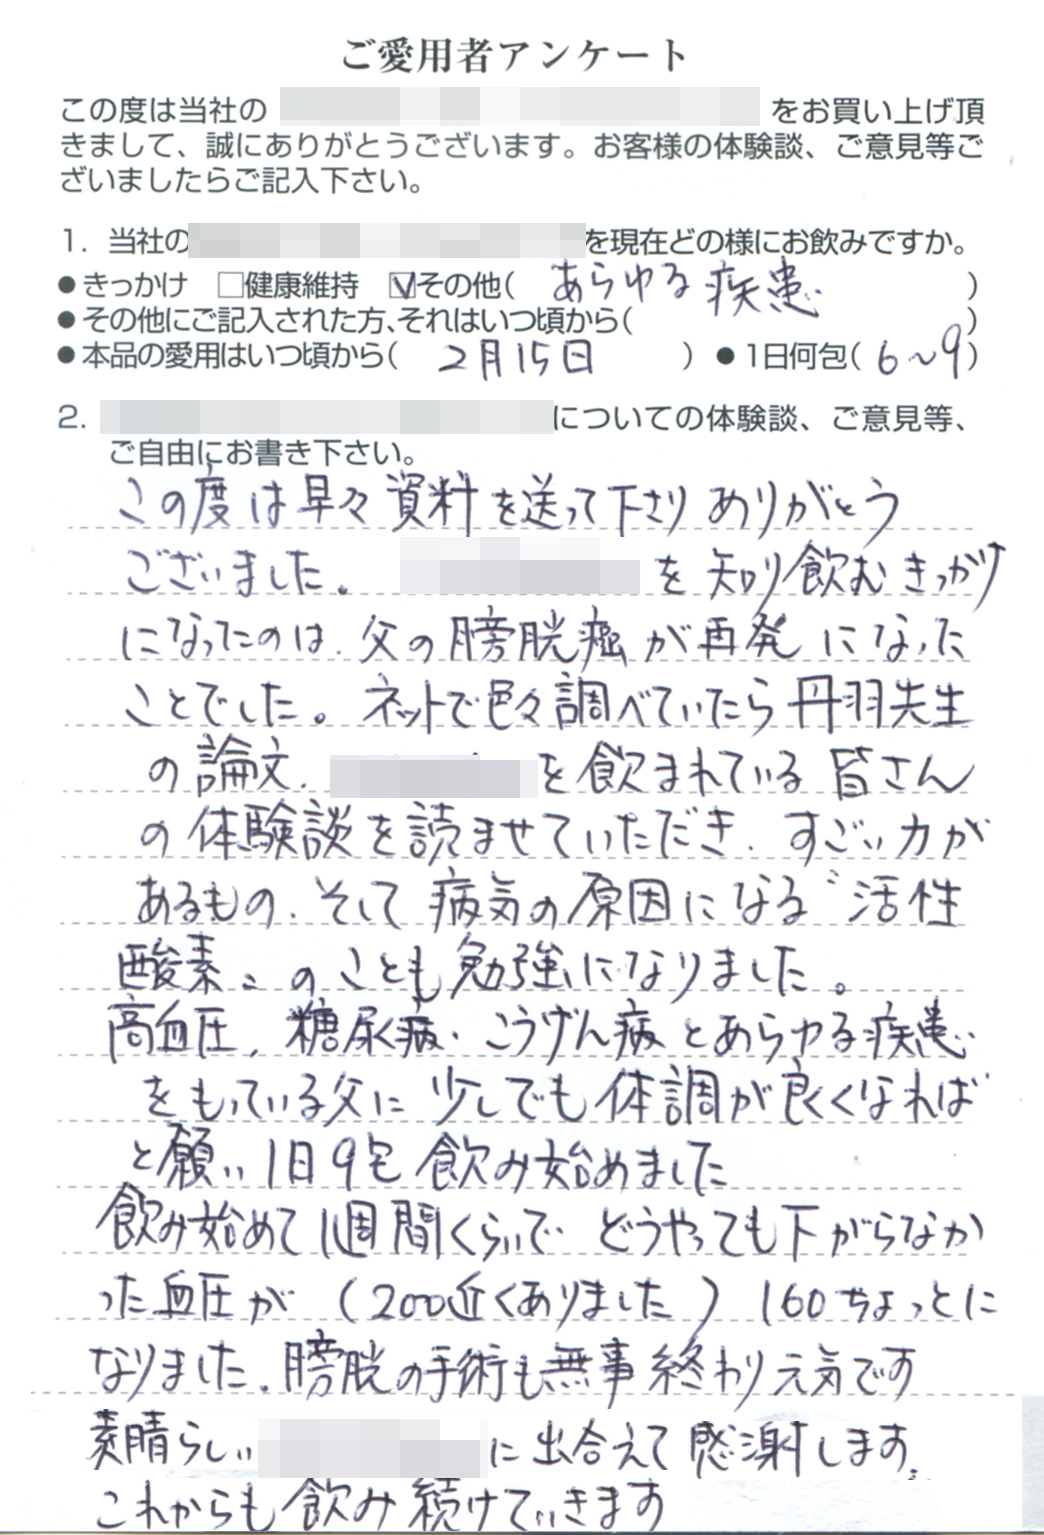 ご愛用者アンケート
この度は当社の をお買い上げ頂
きまして、誠にありがとうございます。お客様の体験談、ご意見等ご
ざいましたらご記入下さい。
1. 当社の を現在どの様にお飲みですか。
●きっかけ □健康維持 ☑その他( あらゆる疾患 )
●その他にご記入された方、それはいつ頃から( )
●本品の愛用はいつ頃から( 2月15日 ) ●1日何包( 6〜9 )
2. についての体験談、ご意見等、
ご自由にお書き下さい。
この度は早々資料を送って下さりありがとう
ございました。 を知り飲むきっかけ
になったのは、父の膀胱癌が再発になった
ことでした。ネットで色々調べていたら丹羽先生
の論文、 を飲まれている皆さん
の体験談を読ませていただき、すごい力が
あるもの、そして病気の原因になる〝活性
酸素〟のことも勉強になりました。
高血圧、糖尿病、こうげん病とあらゆる疾患
をもっている父に少しでも体調が良くなれば
と願い1日9包飲み始めました
飲み始めて1週間くらいで、どうやっても下がらなか
った血圧が(200近くありました)160ちょっとに
なりました。膀胱の手術も無事終わり元気です
素晴らしい に出合えて感謝します。
これからも飲み続けていきます